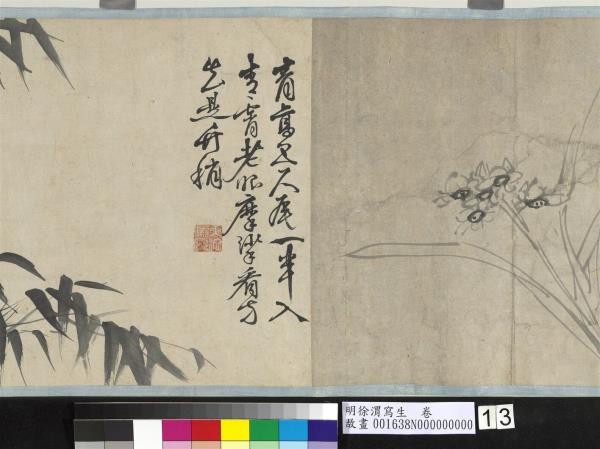 高尺尾一半入
青霄老眼摩挲看方
知是竹梢
明徐渭寫生 卷
故畫001638N000000000
13